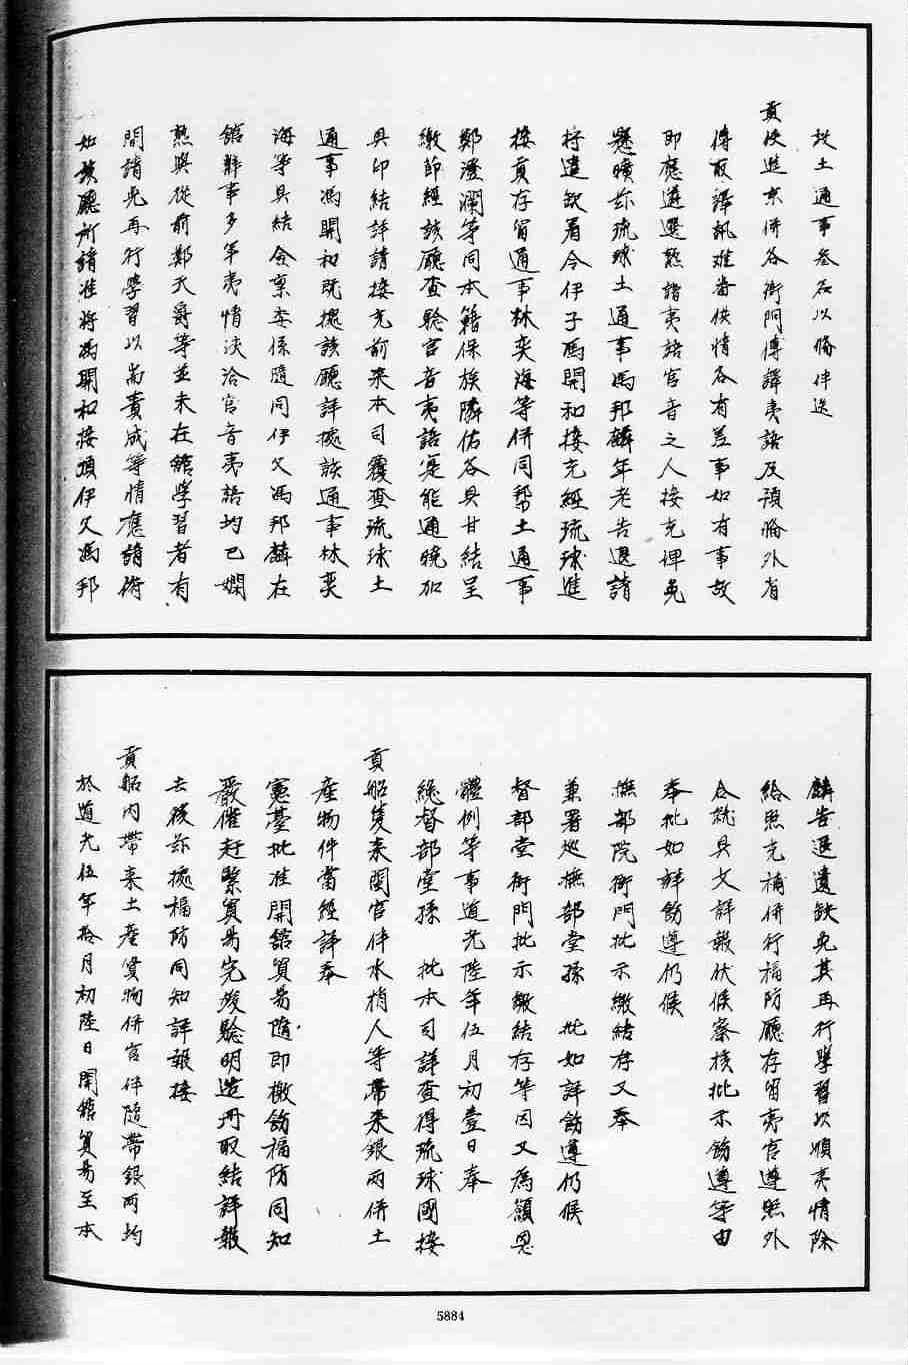 找土通事叁名以倫伴送
貢使進京併各衙門傳譯夷語及預倫外省
傳取譯訊难畨供情各有差事如有事故
即應遴選熟諳夷語官音之人接充俾免
懸曠玆琉球土通事馮邦麟年老告退請
将遺缺着令伊子馮開和接充經琉球進
接貢存留通事林奕海等併同帮土通事
鄭澄瀾等同本籍保族隣佑各具甘結呈
繳節經該廳查騐官音夷語寔能通曉加
具印結詳請接充前来本司覆查琉球土
通事馮開和既㨿該廳詳㨿該通事林奕
海等具結僉禀委係隨同伊父馮邦麟在
舘辦事多年夷情浹洽官音夷語均已嫻
熟與從前鄭天爵等並未在舘學習者有
間請免再行學習以耑責成等情應請俯
如該廳所請准将馮開和接頂伊父馮邦
麟告退遺缺免其再行學習以順夷情除
給照充補併行福防廳存留夷官遵照外
合就具文詳報伏候察核批示飭遵等由
奉批如詳飭遵仍候
撫部院衙門批示繳結存又奉
兼署巡撫部堂孫　批如詳飭遵仍候
督部堂衙門批示繳結存等因又為籲恩
體例等事道光陸年伍月初壹日奉
總督部堂孫　批本司詳查得琉球國接
貢船隻来閩官伴水梢人等帶来銀兩併土
産物件當經詳奉
憲臺批准開舘貿昜随即檄飭福防同知
嚴催赶緊貿昜完竣騐明造册取結詳報
去後玆㨿福防同知詳報接
貢船内帶来土産貨物併官伴随帶銀兩均
於道光伍年拾月初陸日開舘貿昜至本
5884